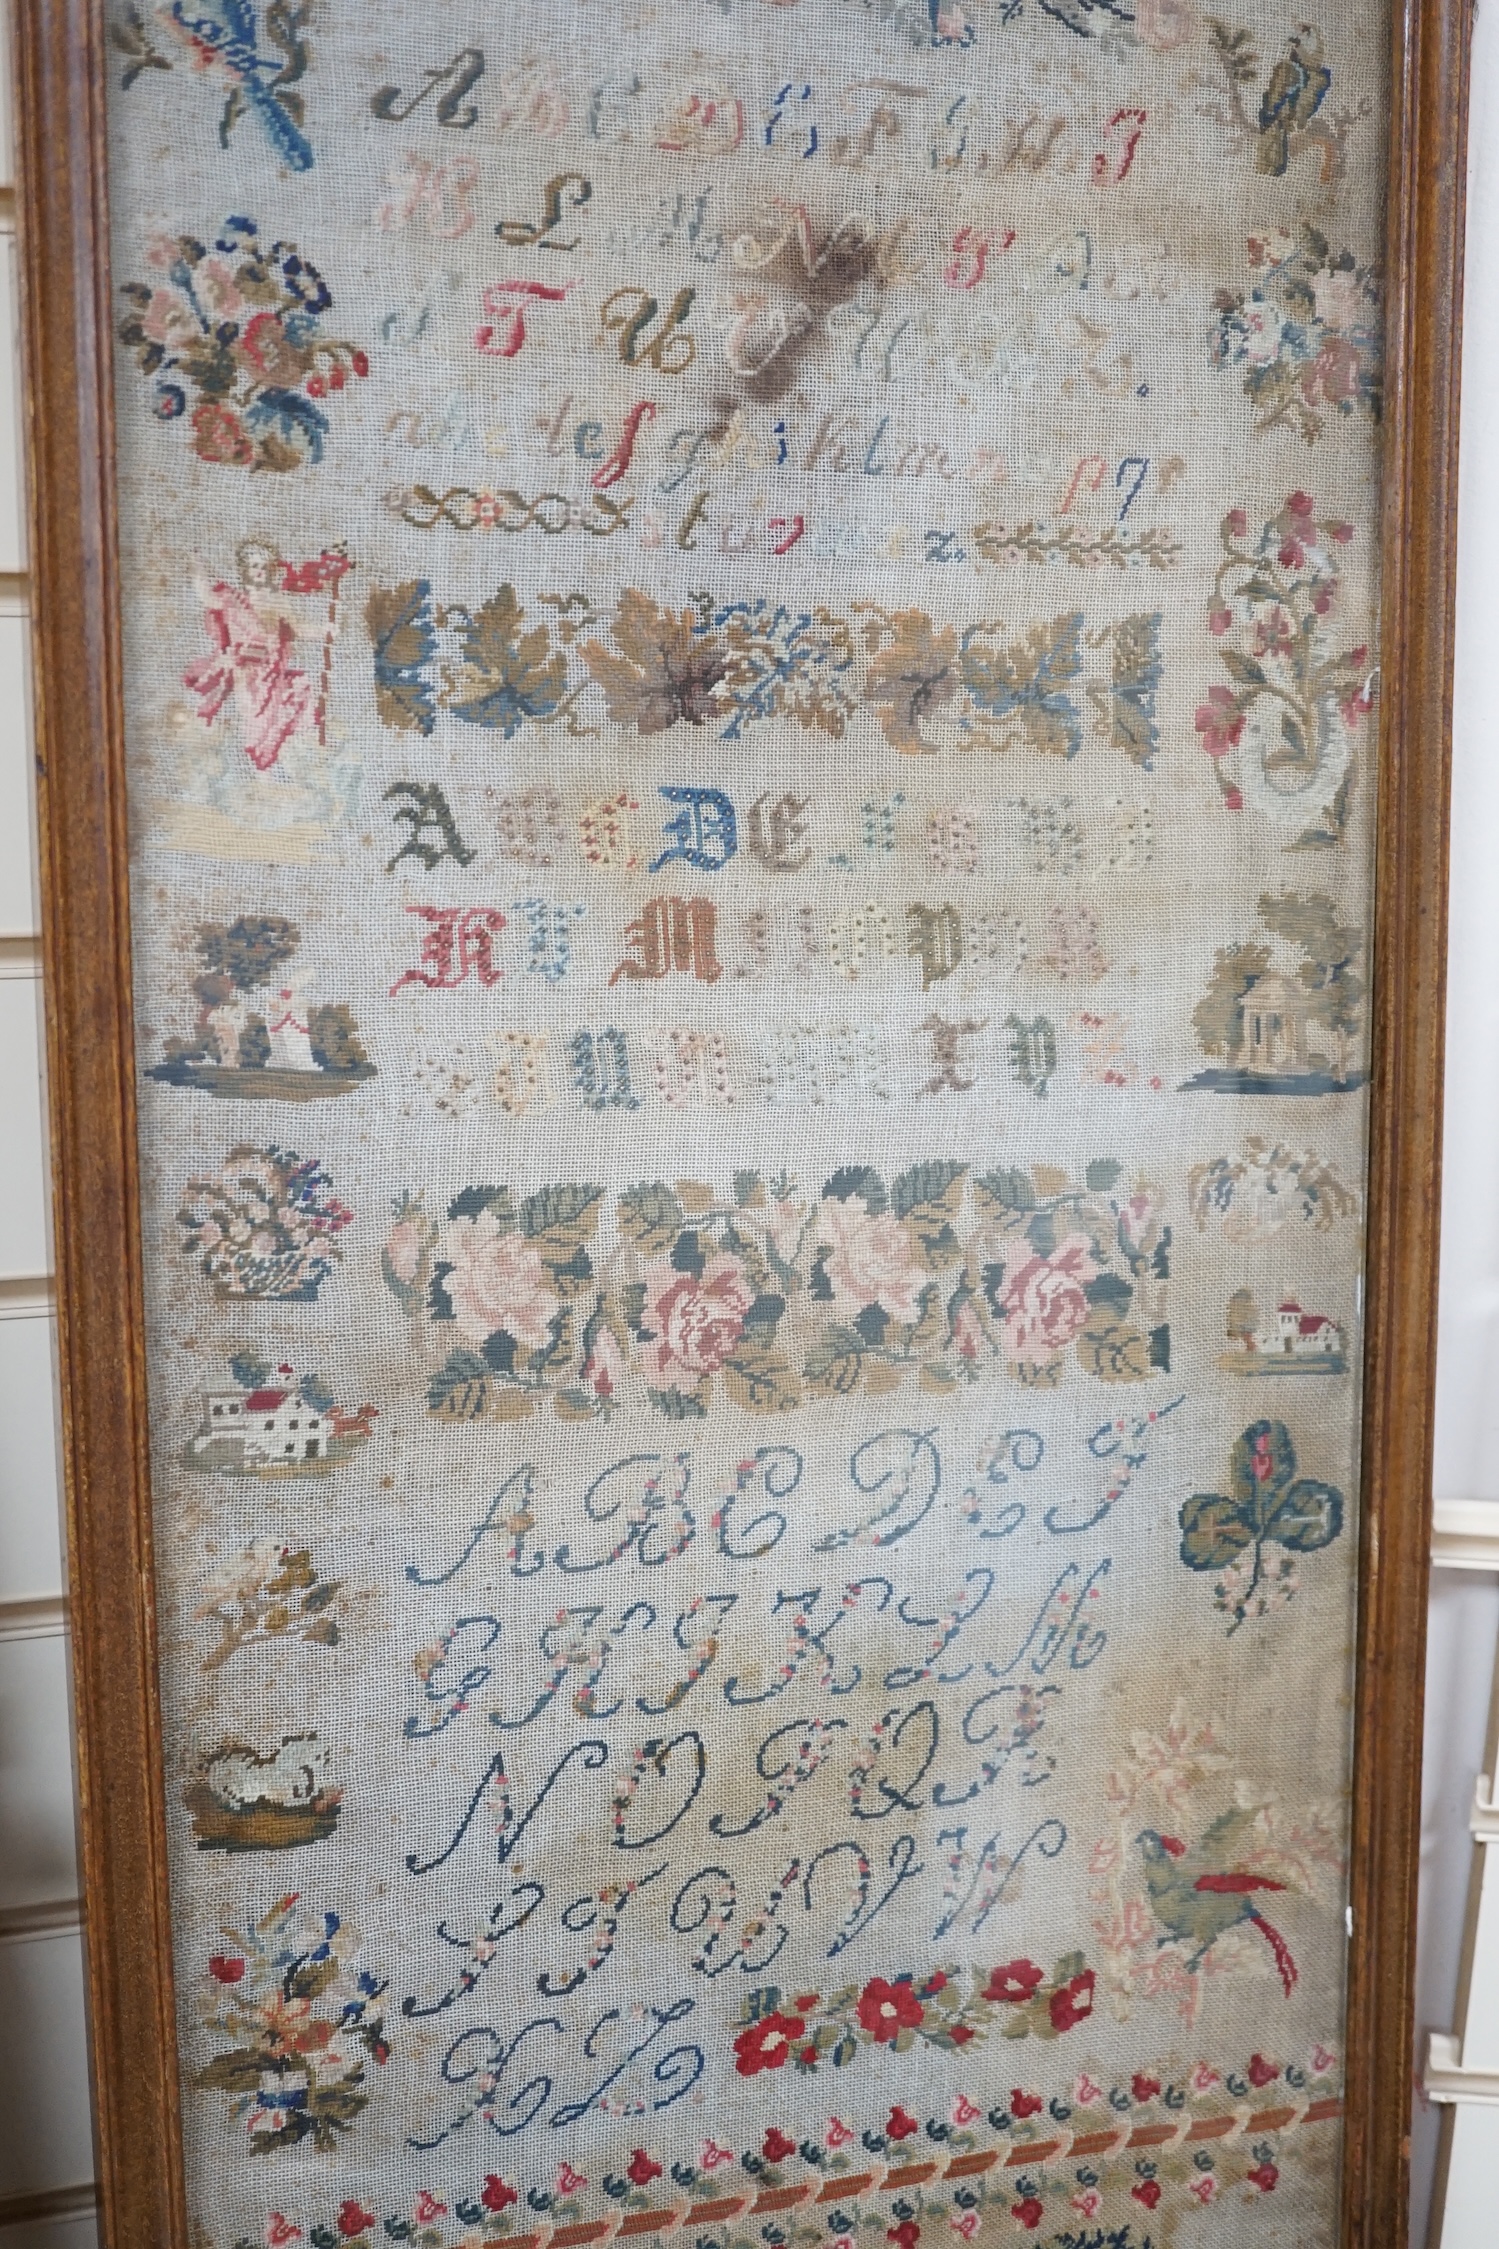 A B C D E F G H I
K L M N O P Q R
S T U V W X Y Z.
a b c d e f g h i k l m n o p q r
s t u v w x y z.
A B C D E F G H I
K L M N O P Q R
S T U V W X Y Z.
A B C D E F
G H I K L M
N O P Q R
S T U V W
X Z